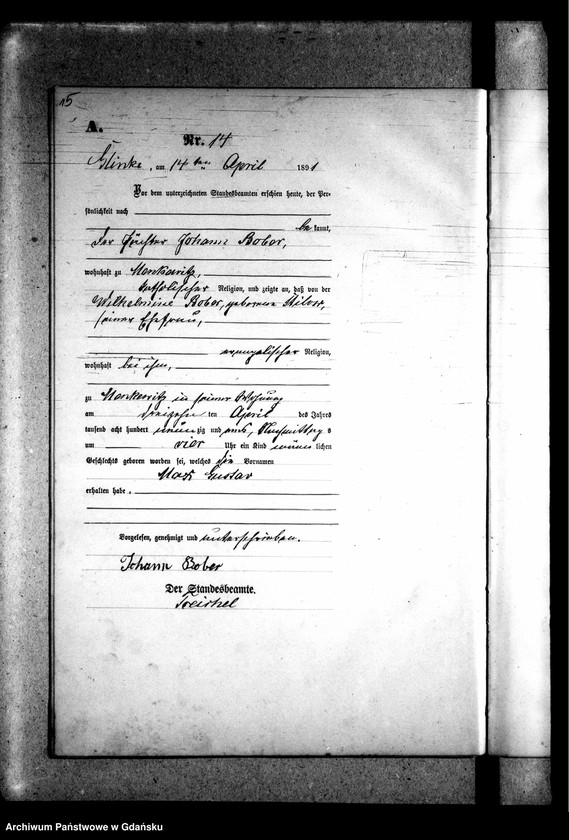 15
A.
Nr. 14
Glinke, am 14 ten April 1891
Vor dem unterzeichneten Standesbeamten erschien heute, der Per-
sönlichkeit nach
be kannt,
der Förster Johann Bober,
wohnhaft zu
katholischer Religion, und zeigte an, daß von der
Wilhelmine Bober, geborene
seiner Ehefrau,
evangelischer Religion,
wohnhaft bei ihm,
zu in seiner Wohnung
am dreizehn ten April des Jahres
tausend acht hundert neun zig und eins, Nachmittag s
um vier Uhr ein Kind männ lichen
Geschlechts geboren worden sei, welches die Vornamen
Max Gustav
erhalten habe.
Vorgelesen, genehmigt und unterschrieben.
Johann Bober
Der Standesbeamte.
Treichel
Archiwum Państwowe w Gdańsku